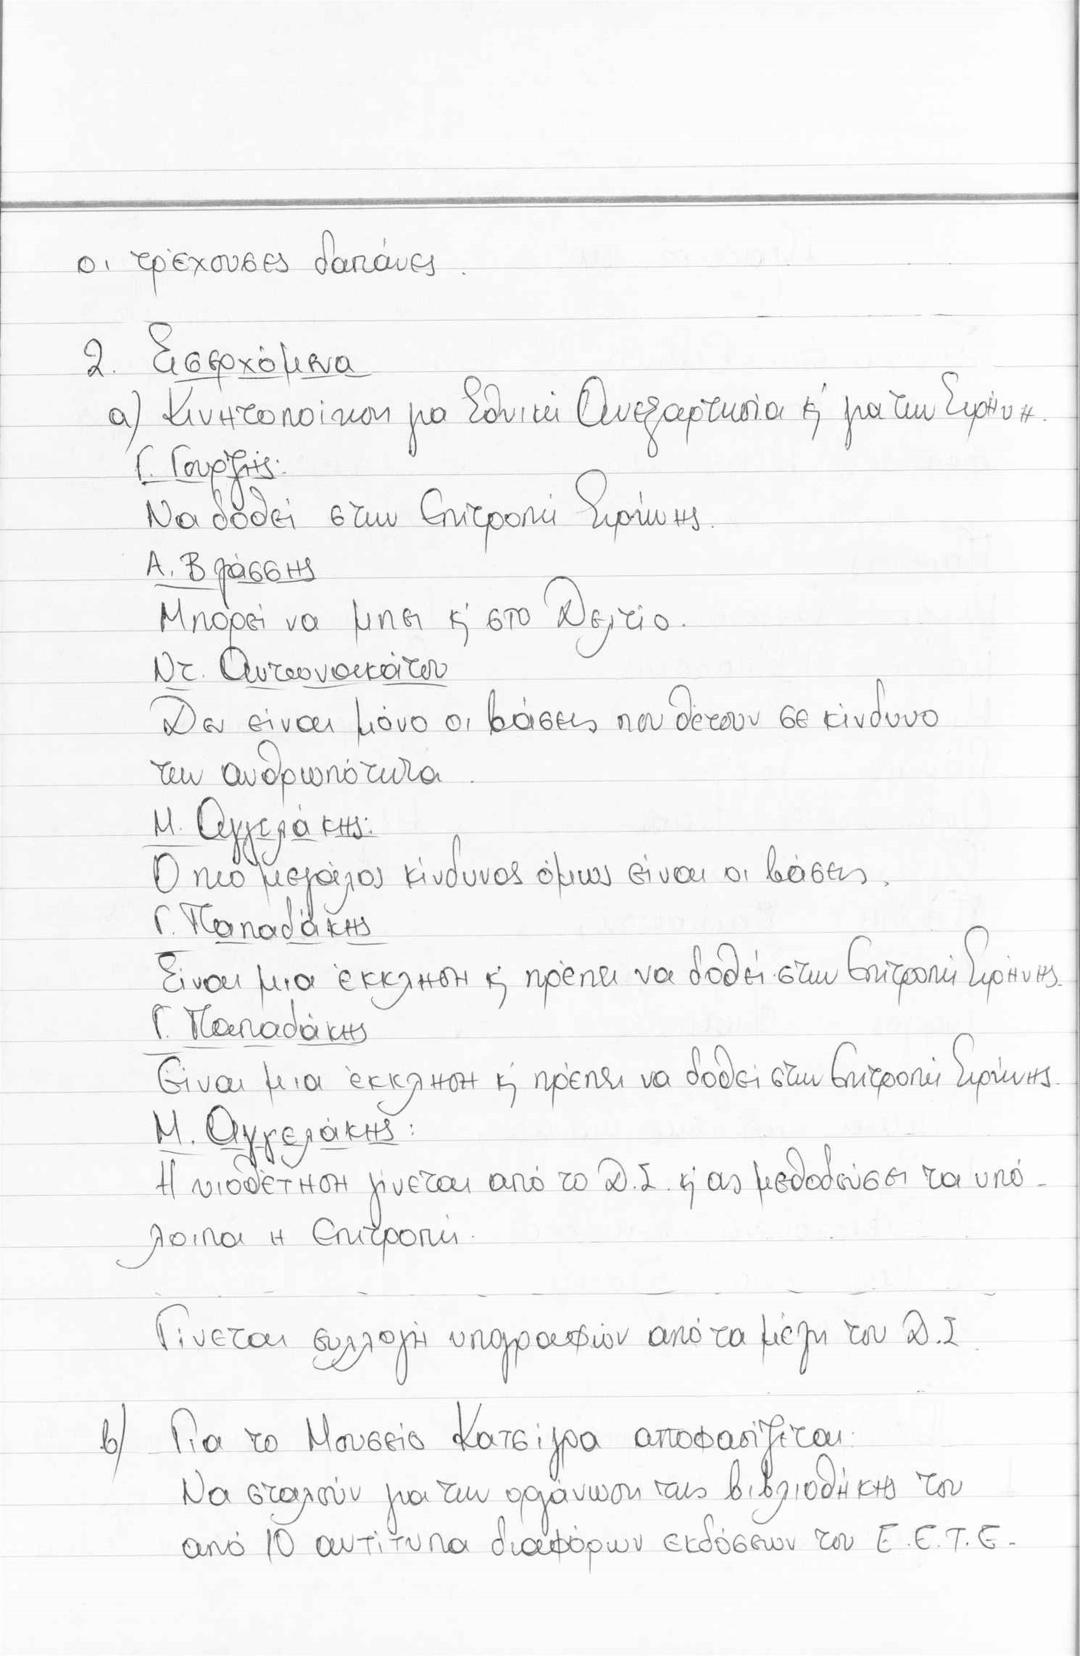 οι τρέχουσες δαπάνες.
2. Εισερχόμενα
α) Κινητοποίηση για Εθνική Ανεξαρτησία κ' για την Ειρήνη.
Γ. Γουρζής:
Να δοθεί στην Επιτροπή Ειρήνης.
Α. Βλάσσης
Μπορεί να μπει κ' στο Δελτίο.
Ντ. Αντωνοκάτου
Δεν είναι μόνο οι βάσεις που θέτουν σε κίνδυνο
την ανθρωπότητα.
Μ. Αγγελάκης:
Ο πιο μεγάλος κίνδυνος όμως είναι οι βάσεις.
Γ. Παπαδάκης
Είναι μια έκκληση κ' πρέπει να δοθεί στην Επιτροπή Ειρήνης.
Γ. Παπαδάκης
Είναι μια έκκληση κ' πρέπει να δοθεί στην Επιτροπή Ειρήνης.
Μ. Αγγελάκης:
Η υιοθέτηση γίνεται από το Δ.Σ. κ' ας μεθοδεύσει τα υπό-
λοιπα η Επιτροπή.
Γίνεται συλλογή υπογραφών από τα μέλη του Δ.Σ.
β) Για το Μουσείο Κατσίγρα αποφασίζεται:
Να σταλούν για την οργάνωση της βιβλιοθήκης του
από 10 αντίτυπα διαφόρων εκδόσεων του Ε.Ε.Τ.Ε.